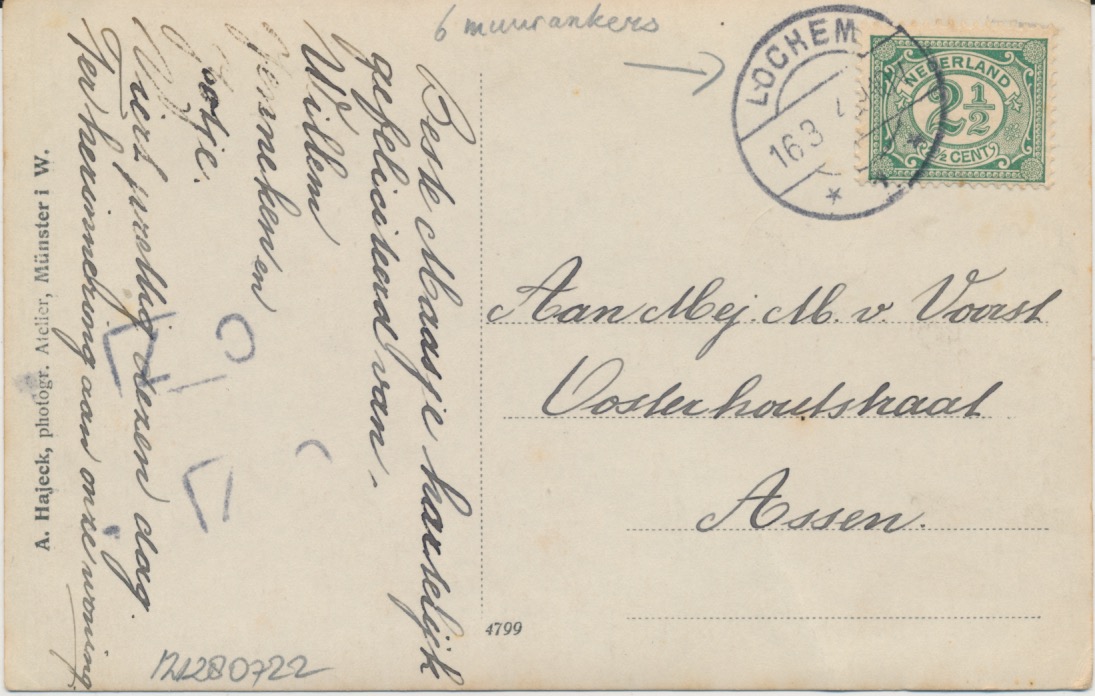 6 muurankers
LOCHEM
16 3
NEDERLAND
2 1/2
2 1/2 CENT
Beste Maasje hartelijk
gefeliciteerd van
Willem
Jenneken en
Jobje.
Viert prettig dezen dag.
Ter herinnering aan onze woning.
A. Hajeck, photogr. Atelier, Münster i W.
Aan Mej. M. v. Voorst
Oosterhoutstraat
Assen.
4799
121280722